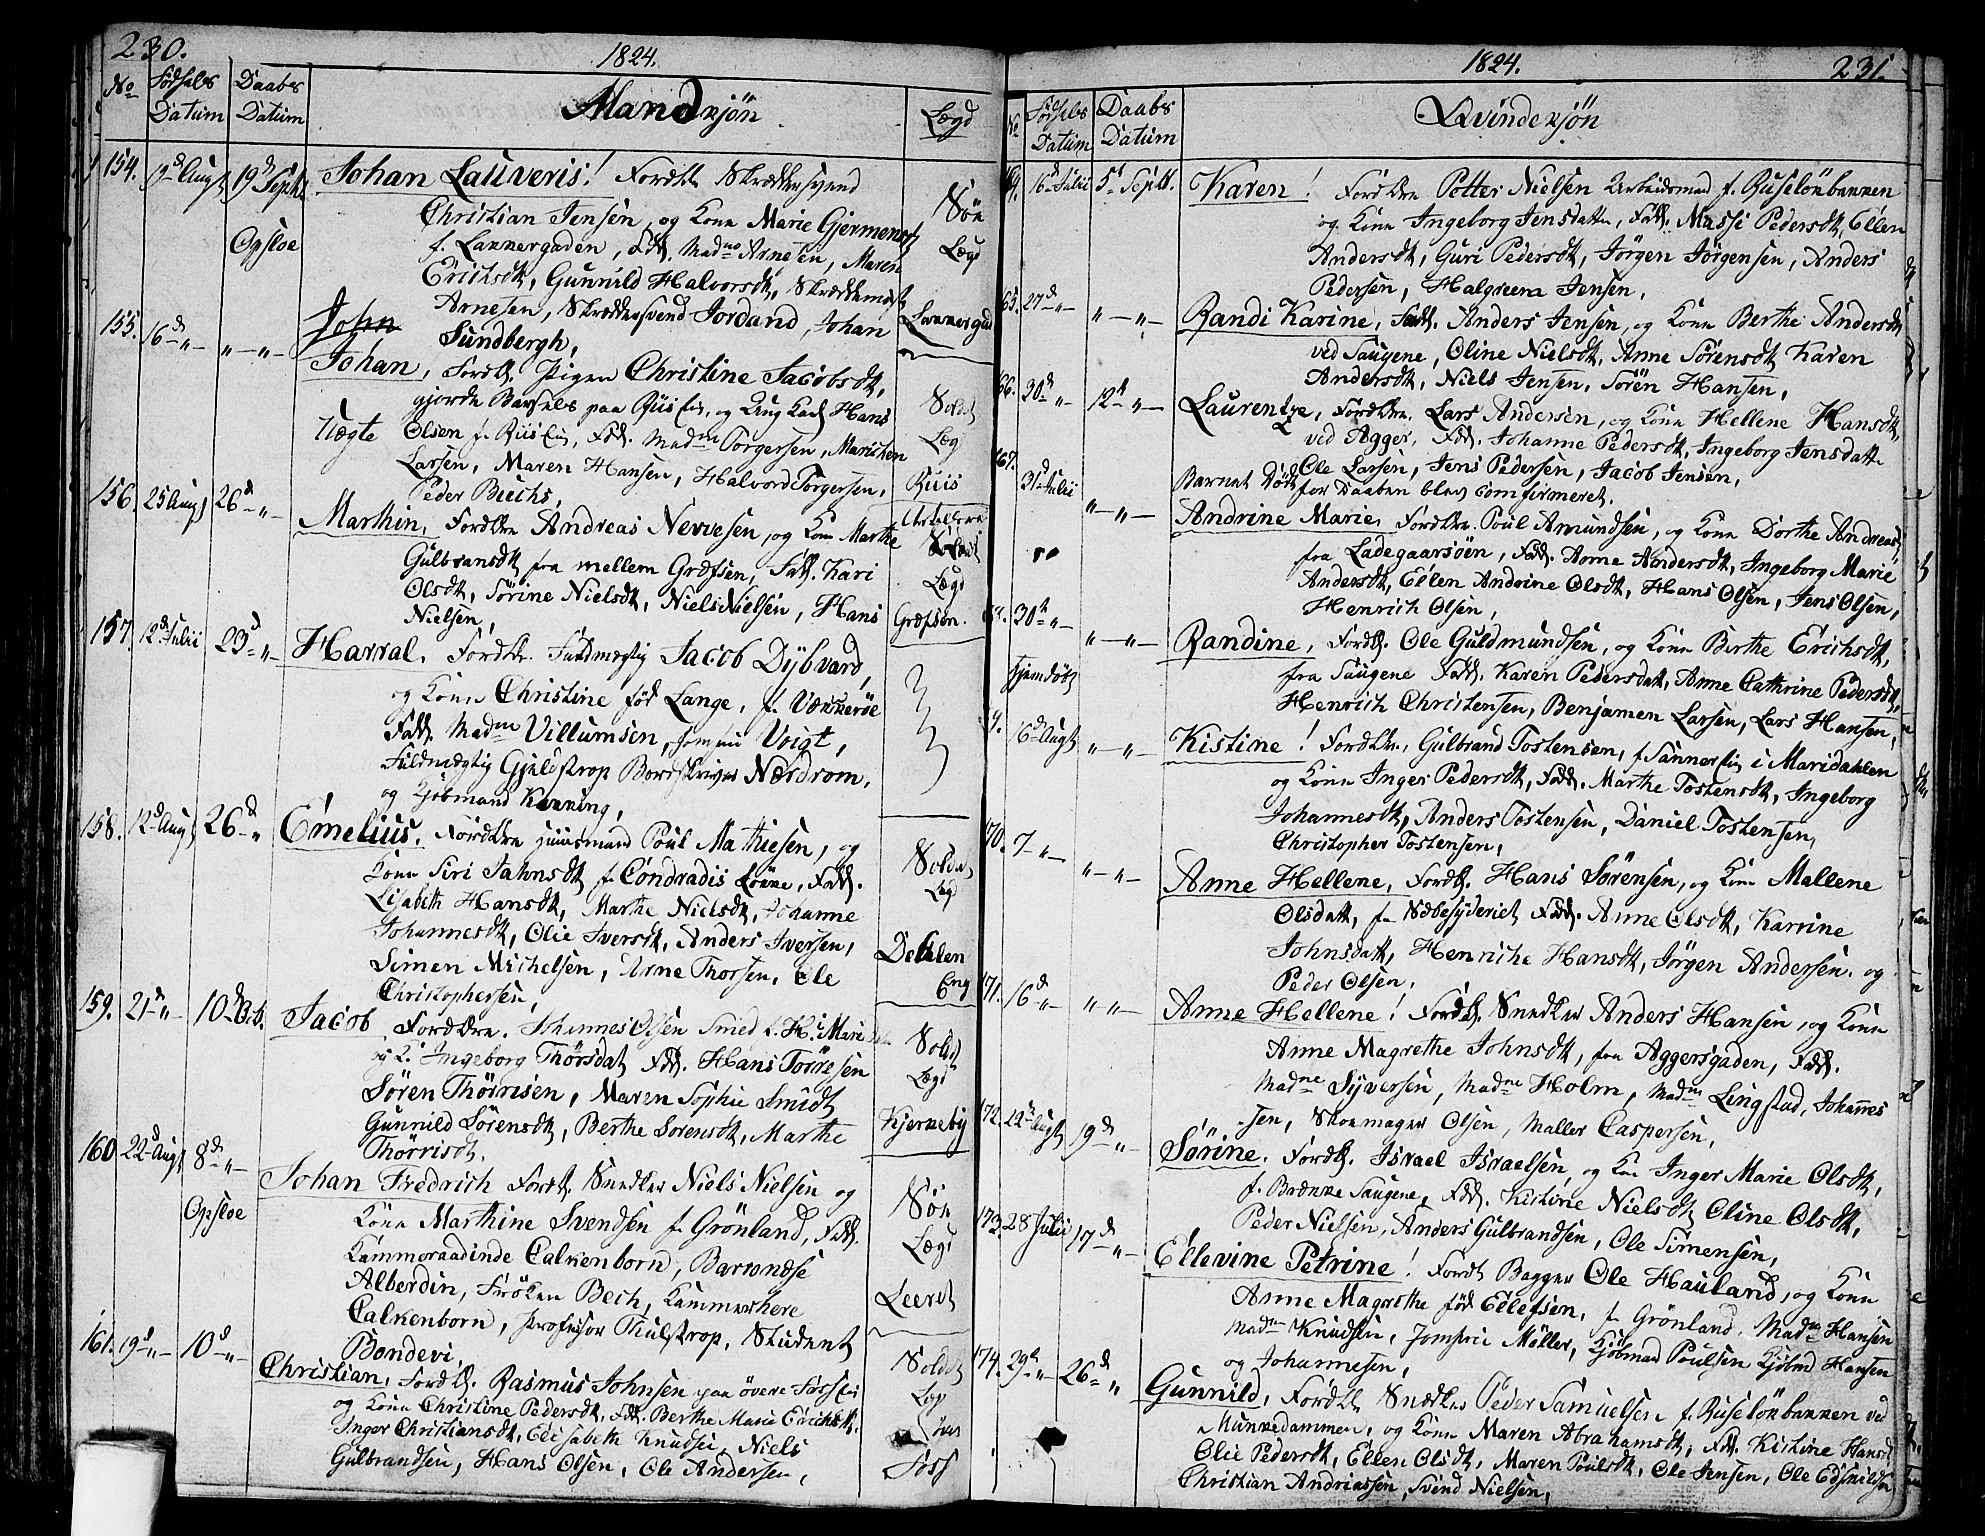 230.
1824.
No
Fødsels Datum
Daabs Datum
Mandkjøn
Lægd
154. 19d Augt 19d Septb.
Opsloe
Johan Lauveris! Forældr. Skrædersvend
Christian Jensen, og Kone Marie Gjermensdt
f. Lakkergaden, Fadd. Madme Arnesen, Maren
Erichsdt, Gunnild Halvorsdt, Skræddermest.
Arnesen, Skræddersvend Jordand, Johan
Sundbergh,
Søe
Lægd
Lakkergad
155. 16d „ „ „
John
Johan, Foreldr. Pigen Christine Jacobsdt,
gjorde Barsels paa Riis Ei, og Ung Karl Hans
Uægte Olsen f. Riis Ei, Fadd. Madme Torgersen, Marichen
Larsen, Maren Hansen, Halvord Torgersen,
Peder Buchs,
Soldt
Læg
Riis
156. 25 Augt 26d „
Marthin, Foreldre Andreas Nevvesen, og Kone Marthe
Gulbransdt fra mellem Grefsen, Fadd. Kari
Olsdt, Sørine Nielsdt, Niels Nielsen, Hans
Nielsen,
Soldt
Lægd
Grefsen.
157. 12d Julii 23d „
Harral, Foreldr. Fuldmegtig Jacob Dybvard,
og Kone Christine fød Lange, f. Vækkerøe
Fadd. Madme Villumsen, Voigt,
Fuldmægtig Gjeldstrop Bordskriver Nærdrom,
og Kjøbmand Kenning,
158. 12d Augt 26d „
Emelius, Foreldre Huusmand Poul Mathiesen, og
Kone Siri Jahnsdt f. Condradis Løkke, Fadd.
Lisabeth Hansdt, Marthe Nielsdt, Johanne
Johannesdt, Olie Iversdt, Anders Iversen,
Simen Michelsen, Arne Thorsen, Ole
Christophersen,
Soldt
Lægd
Eng
159. 21d „ 10d Octb.
Jacob Foreldre. Johannes Olsen Smed
og K. Ingeborg Thørsdat Fadd. Hans Tørresen
Søren Thørrisen, Maren Sophie Smidt
Gunnild Sørensdt, Berthe Sorensdt, Marthe
Thørrisdt.
Soldt
Lægd
Kjerneby
160. 22d Augt 8d „
Opsloe
Johan Fredrich Foreldr. Snedker Niels Nielsen og
Kone Marthine Svendsen f. Grönland, Fadd.
Kammeraadinde Calkenborn,
Alberdin, Frøken Bech, Kammerhere
Calkenborn, Professor Thulstrop, Student
Bondevi,
Søe
Lægd
Leeret
161. 19d „ 10d „
Christian, Foreldr. Rasmus Johnsen paa övere Foss Ei
og Kone Christine Pedersdt, Fadd. Berthe Marie Erichsdt,
Inger Christiansdt, Elisabeth Knudsen, Niels
Gulbrandsen, Hans Olsen, Ole Andersen,
Soldt
Læg
över
Foss
1824.
231.
No
Fødsels Datum
Daabs Datum
Qvindekjøn
16d Julii 5d Septb.
Karen! Foreldre Potter Nielsen Arbeidsmand f. Ruseløkbakken
og Kone Ingeborg Jensdatter, Fadd. Massi Pedersdt, Ellen
Andersdt, Guri Pedersdt, Jørgen Jørgensen, Anders
Pedersen, Halgreena Jensen,
65. 27d „ „ „
Randi Karine, Fadd. Anders Jensen, og Kone Berthe Andersdt
ved Saugene, Oline Nielsdt, Anne Sørensdt Karen
Andersdt, Niels Jensen, Søren Hansen,
66. 30d „ 12d „
Laurentze, Foreldre. Lars Andersen, og Kone Hellene Hansdt,
ved Agger, Fadd. Johanne Pedersdt, Ingeborg Jensdatte
Ole Larsen, Jens Pedersen, Jacob Jensen,
Barnet Døde før Daaben blev comfirmeret.
167. 31d Julii „ „
Andrine Marie, Foreldre. Poul Amundsen, og Kone Dorthe Andreasdt,
fra Ladegaarsøen, Fadd. Anne Andersdt, Ingeborg Marie
Andersdt, Ellen Andrine Olsdt, Hans Olsen, Jens Olsen,
Henrich Olsen,
30d „ „ „
Hjemdøbt
Randine, Foreldr. Ole Guldmundsen, og Kone Birthe Erichsdt,
fra Saugene Fadd. Karen Pedersdat, Anne Cathrine Pedersdt,
Henrich Christensen, Benjamen Larsen, Lars Hansen,
16d Augt „ „
Kistine! Foreldre, Gulbrand Tostensen, i Maridahlen
og Kone Inger Pedersdt, Fadd. Marthe Tostensdt, Ingeborg
Johannesdt, Anders Tostensen, Daniel Tostensen,
Christopher Tostensen,
170. 7 „ „ „
Anne Hellene, Foreldr. Hans Sørensen, og Kone Mallene
Olsdatt, f. Sæbesyderiet Fadd. Anne Olsdt, Karrine
Johnsdatt, Henriche Hansdt, Jørgen Andersen. og
Peder Olsen,
171. 16d „ „ „
Anne Hellene! Foreldr. Snedker Anders Hansen, og Kone
Anne Magrethe Johnsdt, fra Aggersgaden, Fadd.
Madme Syversen, Madme Holm, Madme Lingstad, Johannes
sen, Skomager Olsen, Maller Caspersen,
172. 12d Augt 19d „
Sørine. Foreldr. Israel Israelsen, og Kone Inger Marie Olsdt,
f. Brække Saugene, Fadd. Kistine Nielsdt Oline Olsdt,
Peder Nielsen, Anders Gulbrandsen, Ole Simensen,
173. 28 Julii 17d „
Ellevine Petrine! Foreldr Bagger Ole Hauland, og Kone
Anne Magrethe fød Ellefsen, f. Grönland, Madme Hansen
Madme Knudsen, Jomfrue Møller, Kjöbmand Poulsen Kjöbmd Hansen
og Johannesen,
174. 29d „ 26d „
Gunnild, Foreldre Snedker Peder Samuelsen f. Ruseløkbakken ved
Munkedammen, og Kone Maren Abrahamsdt, Fadd. Kistine Hansdt
Olie Pedersdt, Ellen Olsdt, Maren Poulsdt, Ole Jensen, Ole
Christian Andriassen, Svend Nielsen,